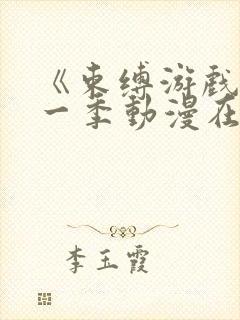 《束缚游戏
一季動漫在
李玉霞